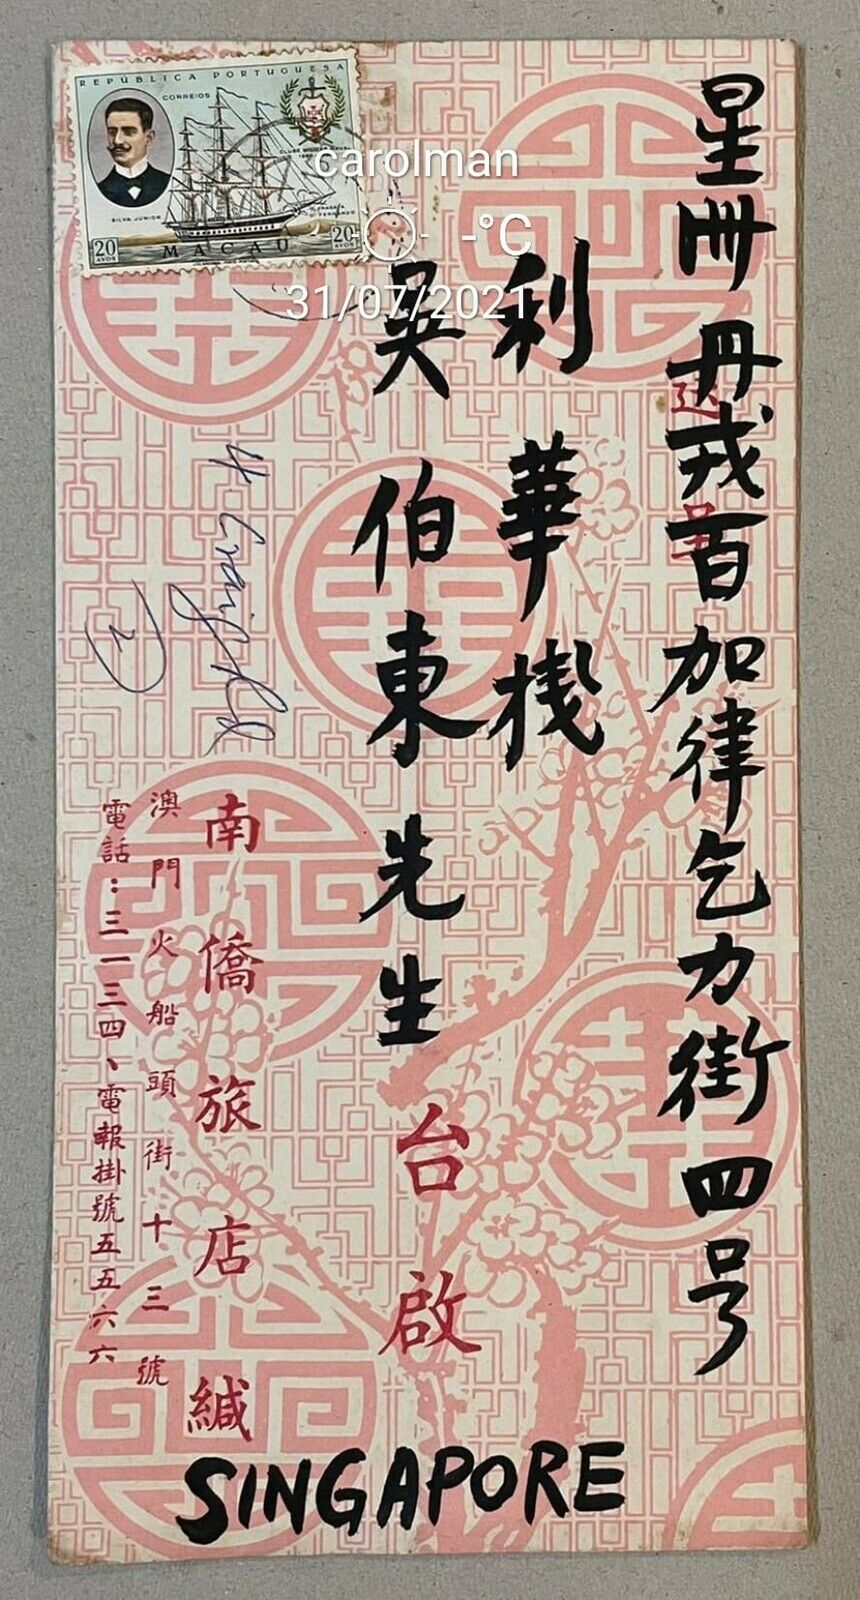 REPÚBLICA PORTUGUESA
CORREIOS
CLUBE MILITAR NAVAL
SILVA JÚNIOR
FRAGATA
D. FERNANDO
20 AVOS
MACAU
20 AVOS
carolman
-°C
31/07/2021
星冊丹戎百加律乞力街四号
送呈
利華棧
吳伯東先生
台啟
4 Craig Rd
2
南僑旅店緘
澳門火船頭街十三號
電話：三一三四、電報掛號五五六六
SINGAPORE